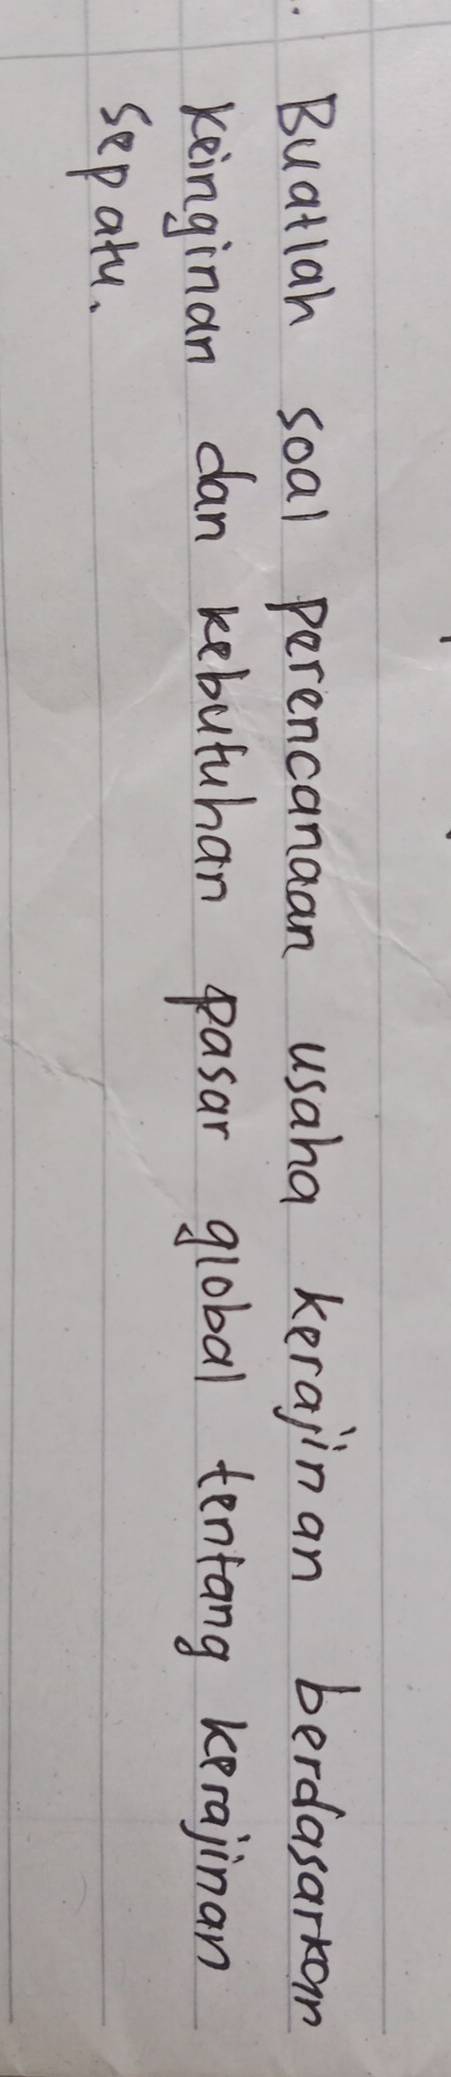 Buatlah soal perencanaan usaha kerajinan berdasarkan
keinginan dan kebutuhan pasar global tentang kerajinan
sepatu.